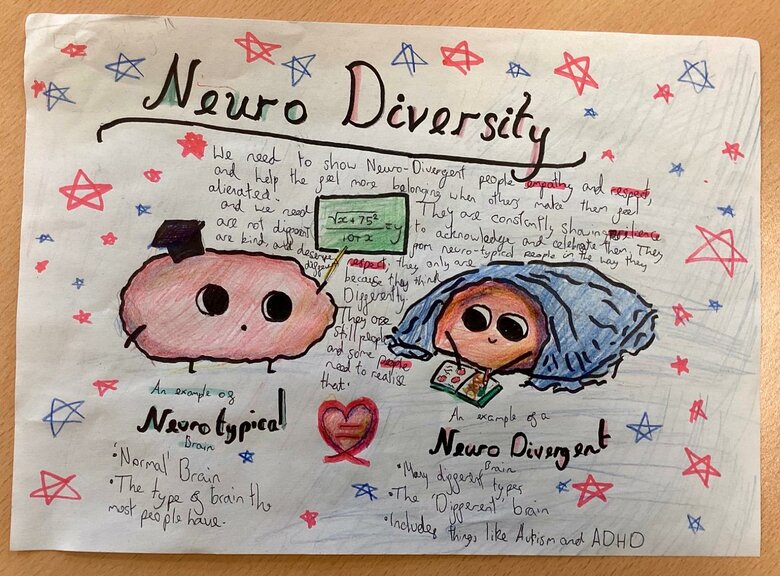 Neuro Diversity
We need to show Neuro-Divergent people empathy and respect,
and help the feel more belonging when others make them feel
alienated. They are constantly
and we need to acknowledge and celebrate them. They
are not from neuro-typical people in the way they
are kind and deserve respect, they only are
because they think
Differently.
They are
still people
and some people
need to realise
that.
√x+75²
10+x =y
An example of
Neurotypical
Brain
•'Normal' Brain
•The type of brain the
most people have.
=
An example of a
Neuro Divergent
Brain
•Many different types
•The 'Different' brain
•Includes things like Autism and ADHD